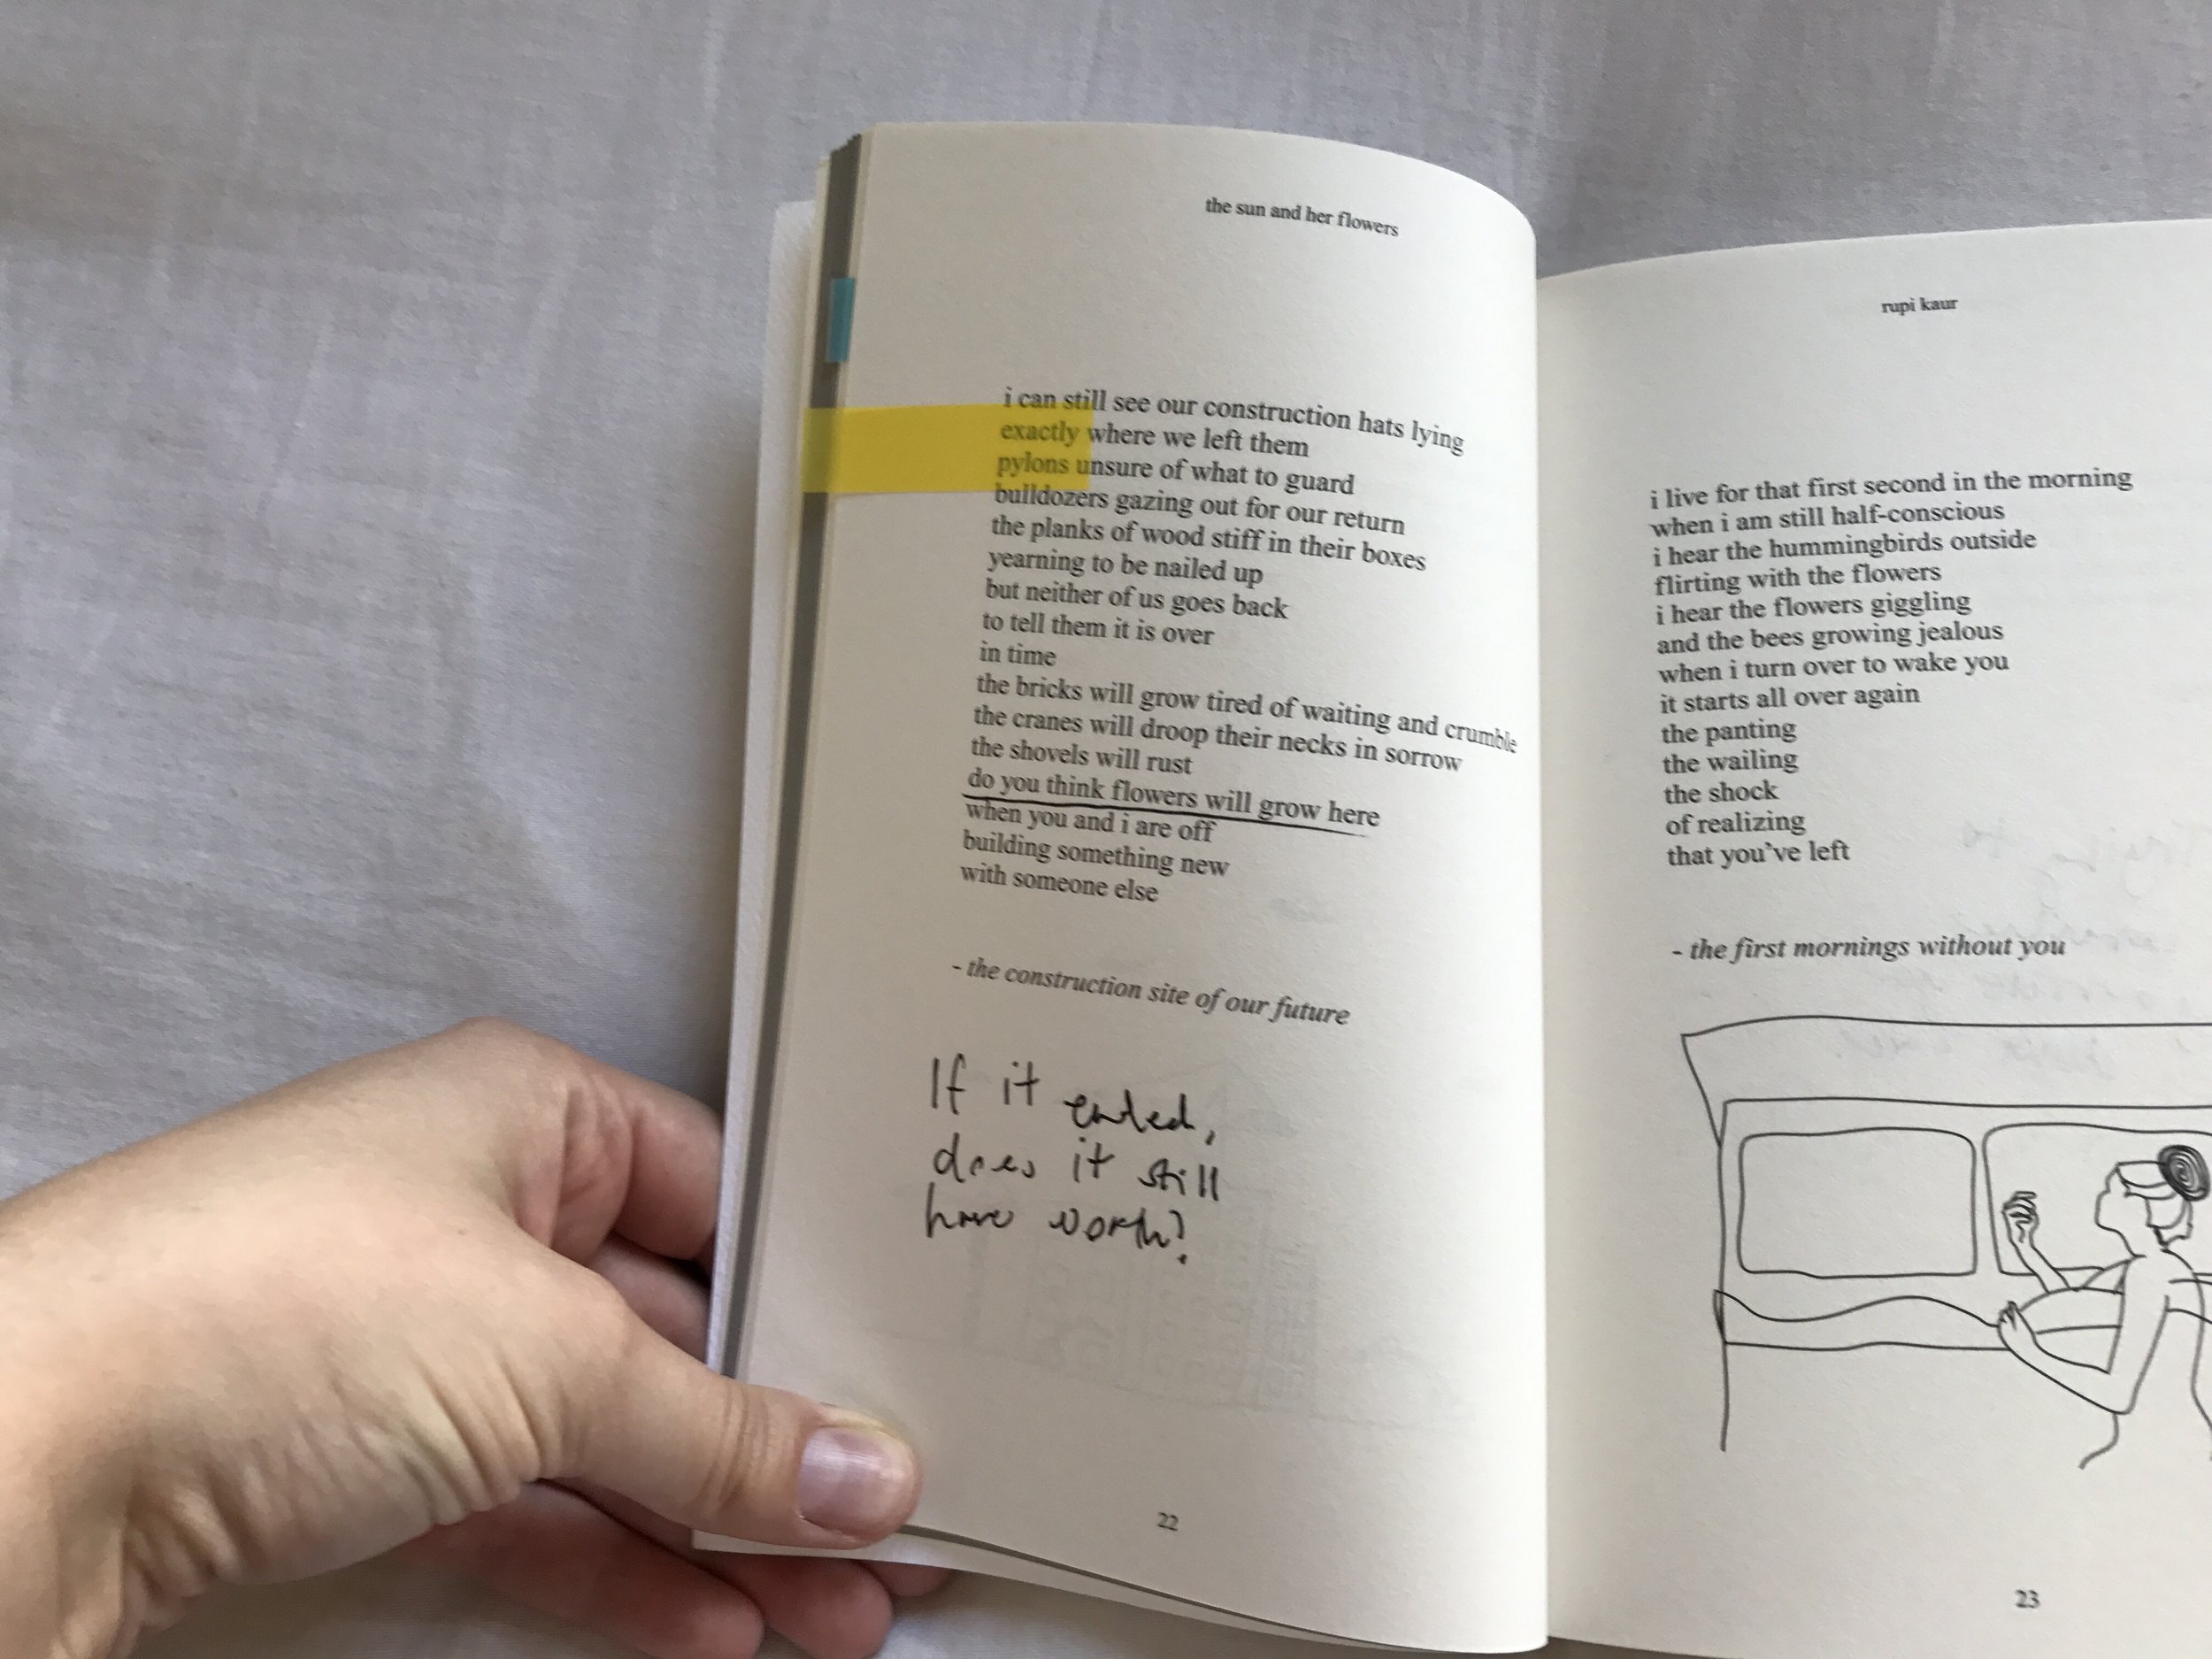 the sun and her flowers
i can still see our construction hats lying
exactly where we left them
pylons unsure of what to guard
bulldozers gazing out for our return
the planks of wood stiff in their boxes
yearning to be nailed up
but neither of us goes back
to tell them it is over
in time
the bricks will grow tired of waiting and crumble
the cranes will droop their necks in sorrow
the shovels will rust
do you think flowers will grow here
when you and i are off
building something new
with someone else
- the construction site of our future
If it ended,
does it still
have worth?
22
rupi kaur
i live for that first second in the morning
when i am still half-conscious
i hear the hummingbirds outside
flirting with the flowers
i hear the flowers giggling
and the bees growing jealous
when i turn over to wake you
it starts all over again
the panting
the wailing
the shock
of realizing
that you've left
- the first mornings without you
23